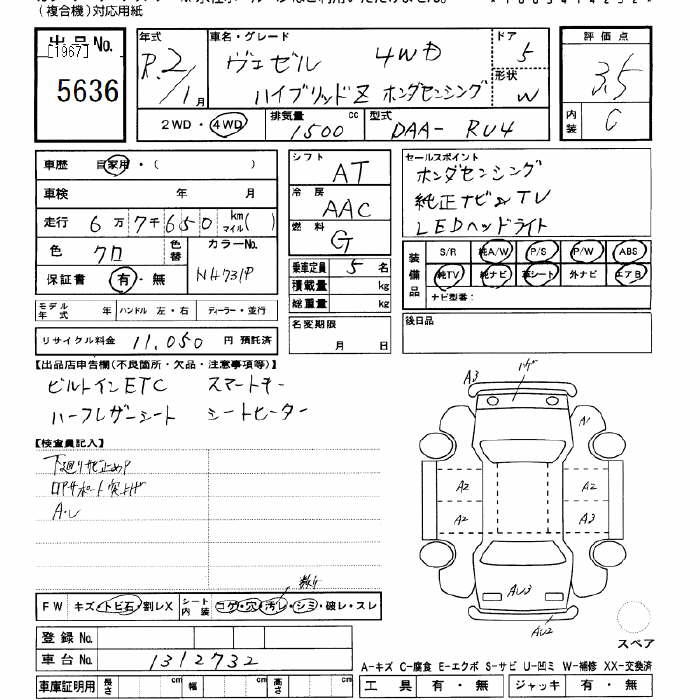 (複合機)対応用紙
出品No. [1967]
5636
年式 R.2/1月
車名・グレード ヴェゼル 4WD
ハイブリッドZ ホンダセンシング
ドア 5
形状 W
評価点 3.5
内装 C
2WD・4WD
排気量 1500 cc
型式 DAA- RU4
車歴 自家用・( )
車検 年 月
走行 6万7千650 km マイル( )
色 クロ 色替 カラーNo. NH731P
保証書 有・無
モデル年式 年 ハンドル 左・右 ディーラー・並行
リサイクル料金 11,050 円 預託済
シフト AT
冷房 AAC
燃料 G
乗車定員 5 名
積載量 kg
総重量 kg
名変期限 月 日
セールスポイント
ホンダセンシング
純正ナビ&TV
LEDヘッドライト
装備品 S/R 純A/W P/S P/W ABS
純TV 純ナビ 革シート 外ナビ エアB
ナビ型番:
後日品
【出品店申告欄(不良箇所・欠品・注意事項等)】
ビルトインETC スマートキー
ハーフレザーシート シートヒーター
【検査員記入】
下廻りサビ止めP
ロアサポート突上げ
A・U
A3 ハゲ
A1
A2 A2
A2 A3
AU3
AU2
スペア
数ケ
FW キズ・トビ石・割レX シート内装 コゲ・穴・汚レ・シミ・破レ・スレ
登録No.
車台No. 1312732
車庫証明用 長さ cm 幅 cm 高さ cm
A-キズ C-腐食 E-エクボ S-サビ U-凹ミ W-補修 XX-交換済
工具 有・無 ジャッキ 有・無